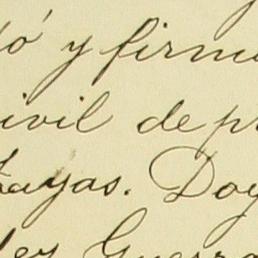 ó y firma
ivil de pr
tayas. Doy
ley Guerra